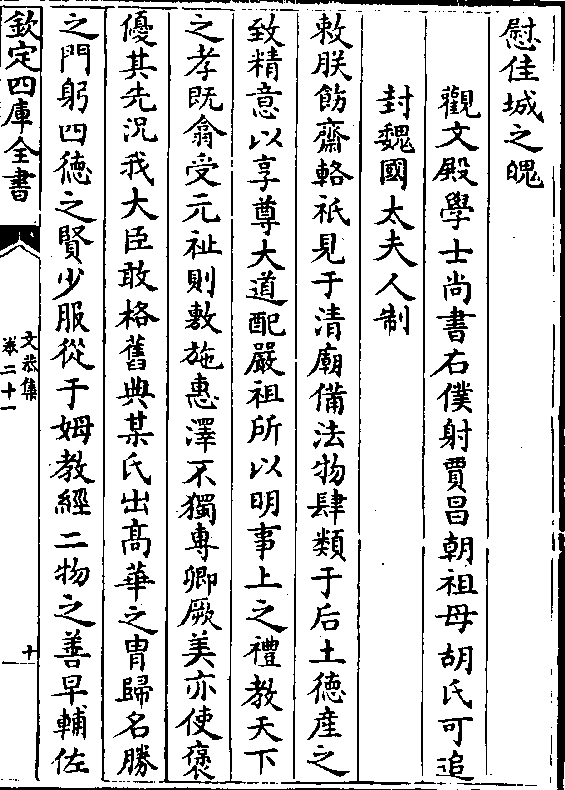 慰佳城之魄
觀文殿學士尚書右僕射賈昌朝祖母胡氏可追
封魏國太夫人制
敕朕飭齋輅祇見于清廟備法物肆類于后土德産之
致精意以享尊大道配嚴祖所以明事上之禮教天下
之孝既翕受元祉則敷施惠澤不獨專卿厥美亦使褒
優其先况我大臣敢格舊典某氏出髙華之胄歸名勝
之門躬四徳之賢少服從于姆教經二物之善早輔佐
欽定四庫全書
文恭集
卷二十一
十